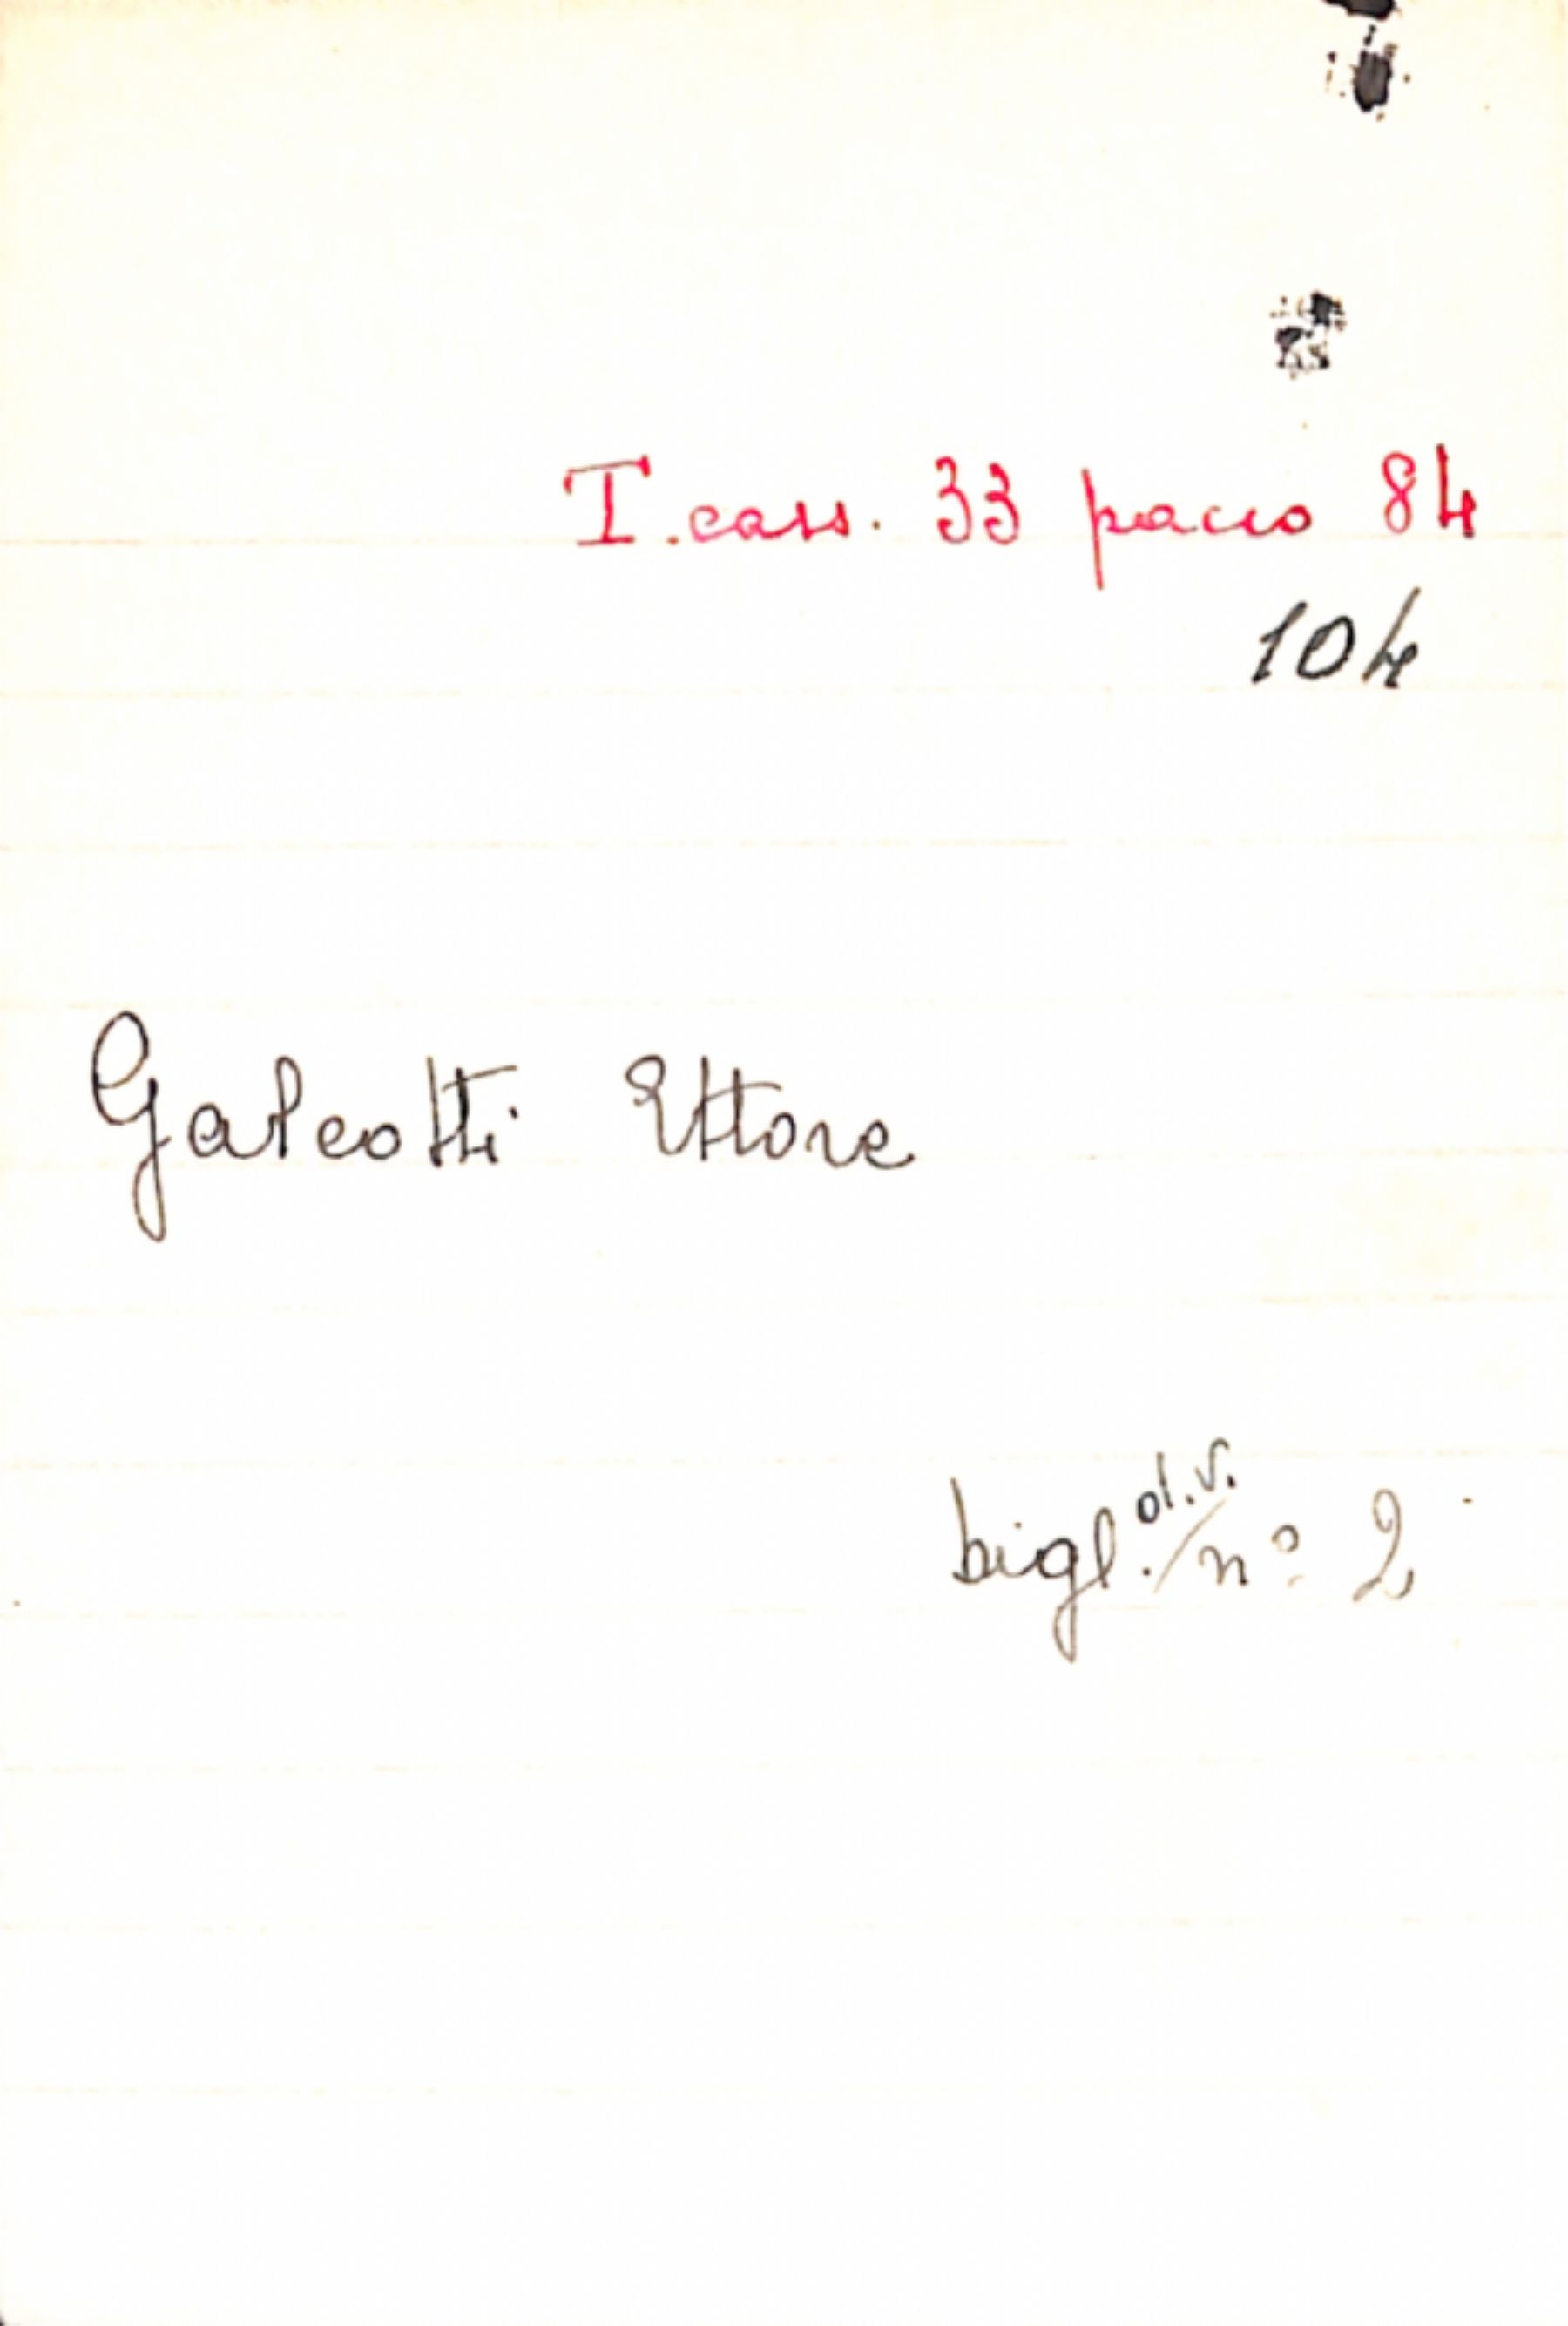 T. cass. 33 pacco 84
104
Galeotti Ettore
bigl. d.v. / n° 2